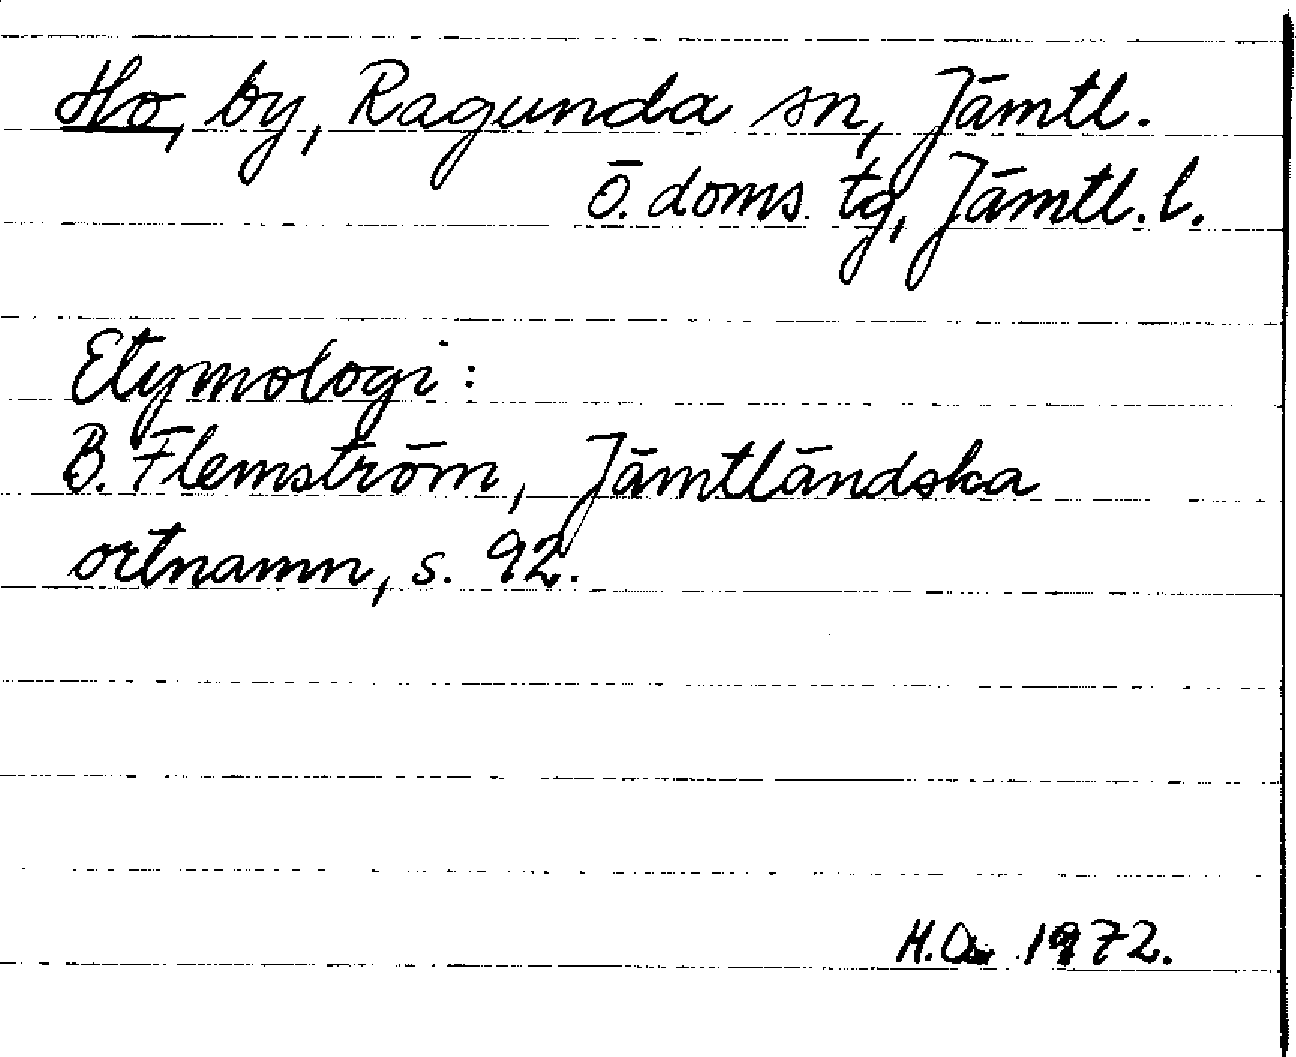 Ho, by, Ragunda sn, Jämtl.
ö. doms. tg, Jämtl. l.
Etymologi:
B. Flemström, Jämtländska
ortnamn, s. 92.
H. 1972.